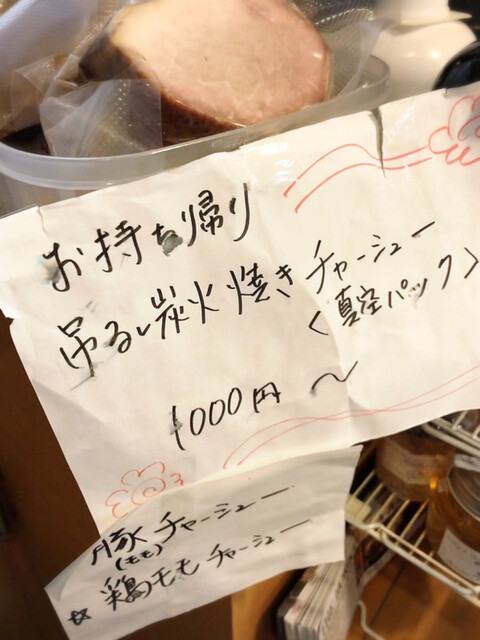 お持ち帰り
吊るし炭火焼きチャーシュー
〈真空パック〉
1000円〜
豚チャーシュー
(モモ)
鶏モモチャーシュー